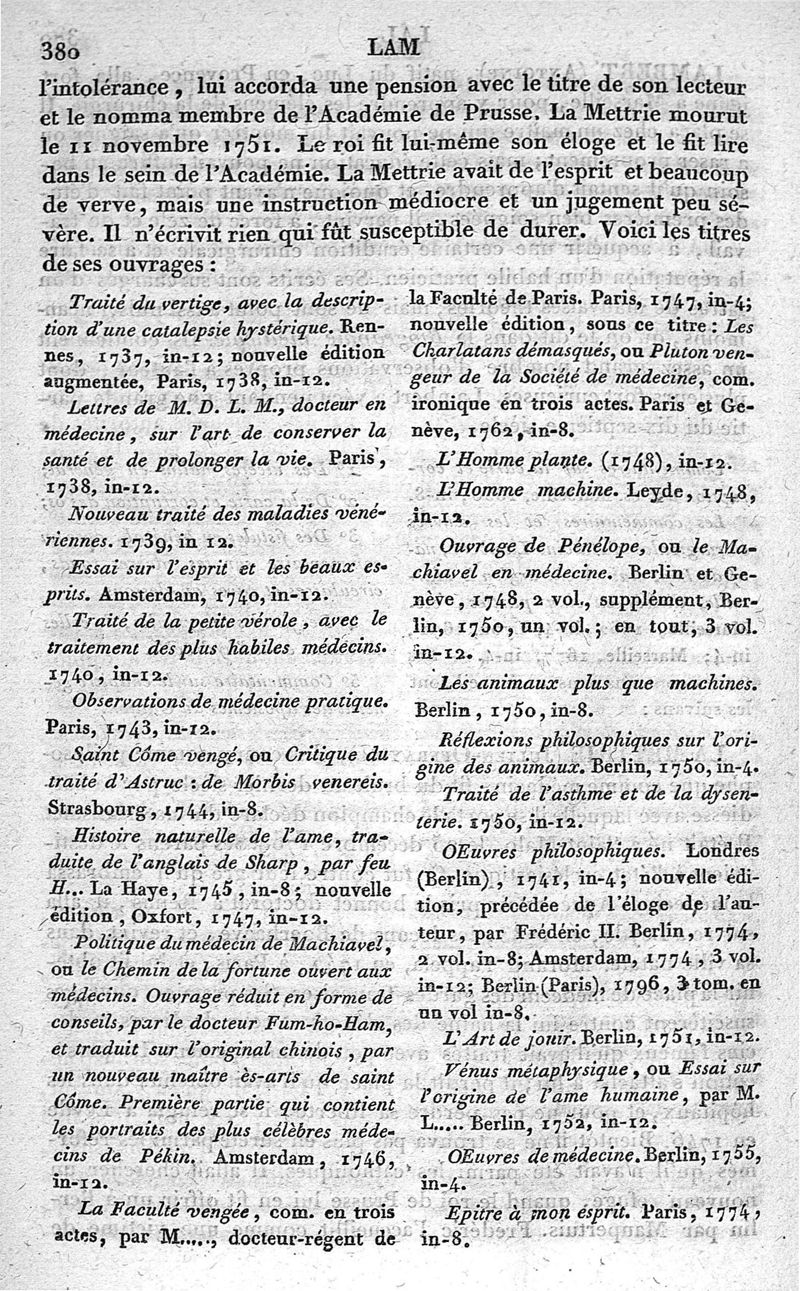 380
LAM
l'intolérance, lui accorda une pension avec le titre de son lecteur
et le nomma membre de l'Académie de Prusse. La Mettrie mourut
le 11 novembre 1751. Le roi fit lui-même son éloge et le fit lire
dans le sein de l'Académie. La Mettrie avait de l'esprit et beaucoup
de verve, mais une instruction médiocre et un jugement peu sé-
vère. Il n'écrivit rien qui fût susceptible de durer. Voici les titres
de ses ouvrages :
Traité du vertige, avec la descrip-
tion d'une catalepsie hystérique. Ren-
nes, 1737, in-12; nouvelle édition
augmentée, Paris, 1738, in-12.
Lettres de M. D. L. M., docteur en
médecine, sur l'art de conserver la
santé et de prolonger la vie. Paris,
1738, in-12.
Nouveau traité des maladies véné-
riennes. 1739, in 12.
Essai sur l'esprit et les beaux es-
prits. Amsterdam, 1740, in-12.
Traité de la petite vérole, avec le
traitement des plus habiles médecins.
1740, in-12.
Observations de médecine pratique.
Paris, 1743, in-12.
Saint Côme vengé, ou Critique du
traité d'Astruc : de Morbis venereis.
Strasbourg, 1744, in-8.
Histoire naturelle de l'ame, tra-
duite de l'anglais de Sharp, par feu
H... La Haye, 1745, in-8; nouvelle
édition, Oxfort, 1747, in-12.
Politique du médecin de Machiavel,
ou le Chemin de la fortune ouvert aux
médecins. Ouvrage réduit en forme de
conseils, par le docteur Fum-ho-Ham,
et traduit sur l'original chinois, par
un nouveau maître ès-arts de saint
Côme. Première partie qui contient
les portraits des plus célèbres méde-
cins de Pékin. Amsterdam, 1746,
in-12.
La Faculté vengée, com. en trois
actes, par M....., docteur-régent de
la Faculté de Paris. Paris, 1747, in-4;
nouvelle édition, sous ce titre : Les
Charlatans démasqués, ou Pluton ven-
geur de la Société de médecine, com.
ironique en trois actes. Paris et Ge-
nève, 1762, in-8.
L'Homme plante. (1748), in-12.
L'Homme machine. Leyde, 1748,
in-12.
Ouvrage de Pénélope, ou le Ma-
chiavel en médecine. Berlin et Ge-
nève, 1748, 2 vol., supplément, Ber-
lin, 1750, un vol.; en tout, 3 vol.
in-12.
Les animaux plus que machines.
Berlin, 1750, in-8.
Réflexions philosophiques sur l'ori-
gine des animaux. Berlin, 1750, in-4.
Traité de l'asthme et de la dysen-
terie. 1750, in-12.
OEuvres philosophiques. Londres
(Berlin), 1741, in-4; nouvelle édi-
tion, précédée de l'éloge de l'au-
teur, par Frédéric II. Berlin, 1774,
2 vol. in-8; Amsterdam, 1774, 3 vol.
in-12; Berlin (Paris), 1796, 3 tom. en
un vol in-8.
L'Art de jouir. Berlin, 1751, in-12.
Vénus métaphysique, ou Essai sur
l'origine de l'ame humaine, par M.
L..... Berlin, 1752, in-12.
OEuvres de médecine. Berlin, 1755,
in-4.
Epitre à mon ésprit. Paris, 1774,
in-8.